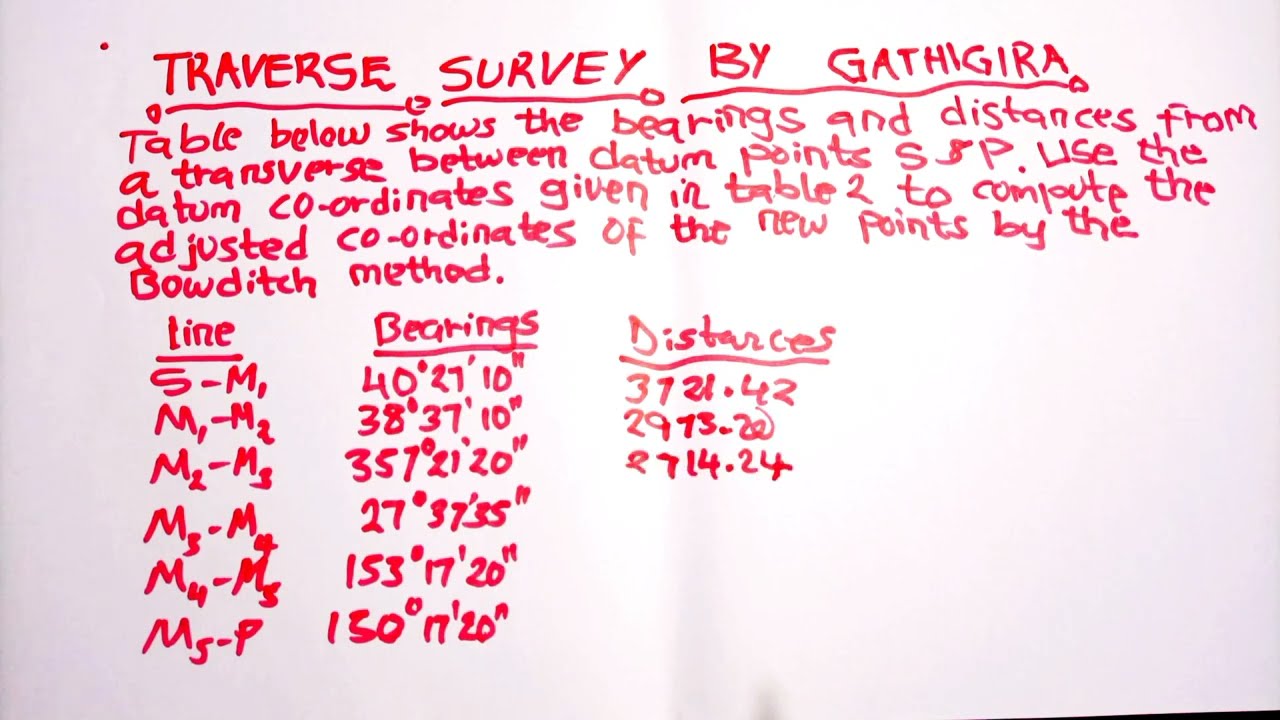 TRAVERSE SURVEY BY GATHIGIRA
Table below shows the bearings and distances from
a transverse between datum points S & P. Use the
datum co-ordinates given in table 2 to compute the
adjusted co-ordinates of the new points by the
Bowditch method.
Line Bearings Distances
S-M₁ 40°27'10" 3721.42
M₁-M₂ 38°37'10" 2973.20
M₂-M₃ 357°21'20" 2714.24
M₃-M₄ 27°37'35"
M₄-M₅ 153°17'20"
M₅-P 150°17'20"